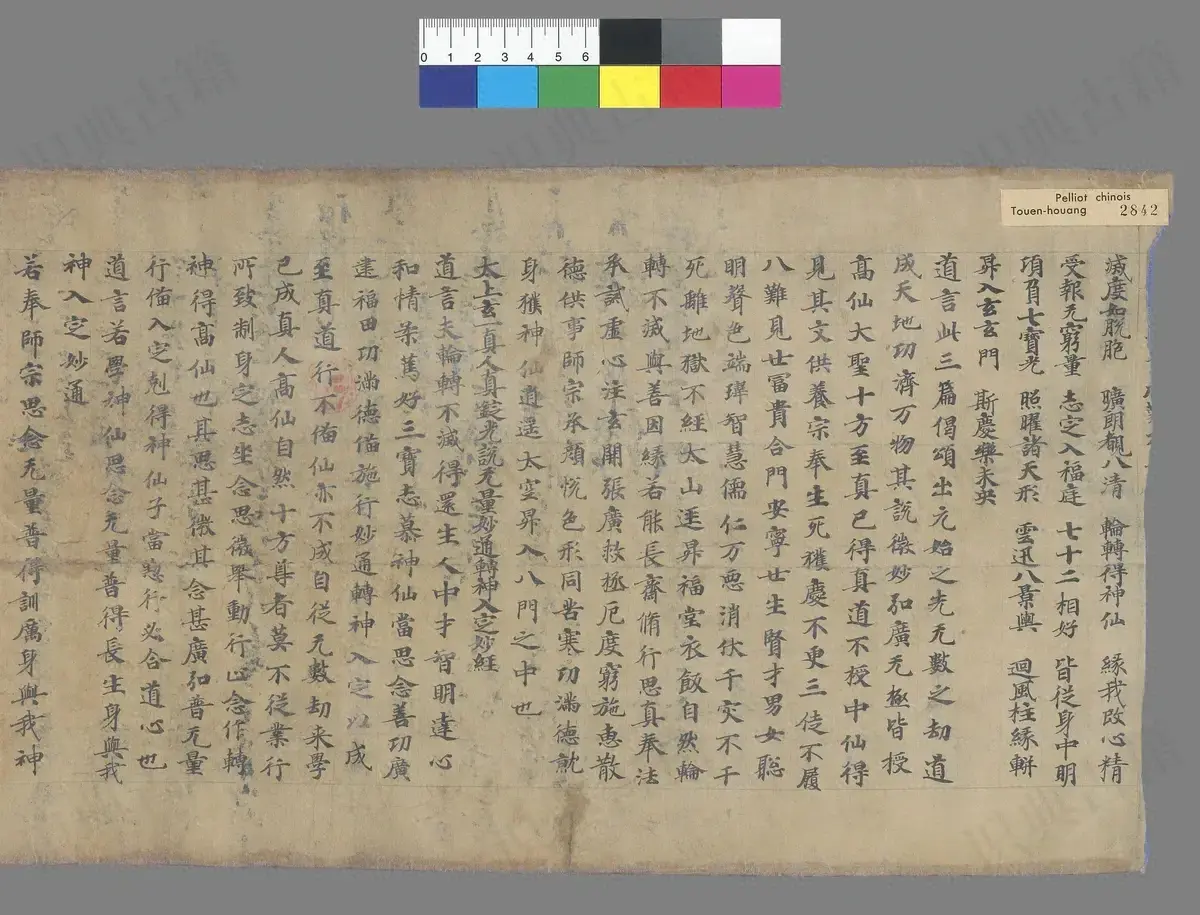 Pelliot chinois
Touen-houang 2842
0 1 2 3 4 5 6
滅度如脱胞 曠朗觀八清 輪轉得神仙 緣我改心精
受報无窮量 志定入福庭 七十二相好 皆從身中明
項負七寶光 照曜諸天形 雲迅八景輿 迴風柱緣軿
昇入玄玄門 斯慶樂未央
道言此三篇偈頌出元始之先无數之劫道
成天地功濟万物其説微妙弘廣无極皆授
高仙大聖十方至真已得真道不授中仙得
見其文供養宗奉生死獲慶不更三徒不履
八難見世冨貴合門安寧世生賢才男女聡
明聲色端瑋智慧儒仁万惡消伏千灾不干
死離地獄不經太山逕昇福堂衣飯自然輪
轉不滅與善因緣若能長齋脩行思真奉法
承誡虛心注玄開張廣救拯厄度窮施惠散
德供事師宗承顔恱色形同苦寒功滿德就
身獲神仙逍遥太空昇入八門之中也
太上玄一真人真定光説无量妙通轉神入定妙經
道言夫輪轉不滅得還生人中才智明達心
和情柔篤好三寶志慕神仙當思念善功廣
建福田功滿德備施行妙通轉神入定以成
至真道行不備仙亦不成自從无數劫来學
已成真人高仙自然十方尊者莫不從業行
所致制身定志坐念思微舉動行止念作轉
神得高仙也其思甚微其念甚廣弘普无量
行備入定剋得神仙子當懃行必合道心也
道言若學神仙思念无量普得長生身與我
神入定妙通
若奉師宗思念无量普得訓厲身與我神